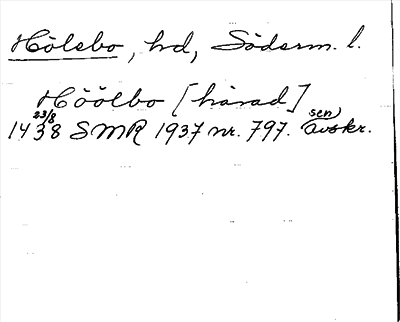 Hölebo, hd, Söderm. l.
Hóólbo [hárad]
23/8
1438 SMR 1937 nr. 797. sen avskr.